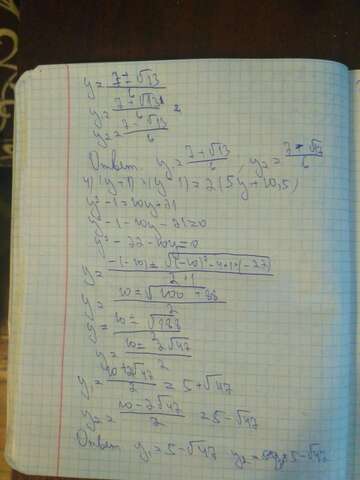 y = 7 ± √13 / 6
y₁ = 7 + √13 / 6
y₂ = 7 - √13 / 6
Ответ y₁ = 7 + √13 / 6, y₂ = 7 - √13 / 6
4) (y+1)(y-1) = 2(5y+10,5)
y² - 1 = 10y + 21
y² - 1 - 10y - 21 = 0
y² - 22 - 10y = 0
y = -(-10) ± √(-10)² - 4·1·(-22) / 2·1
y = 10 ± √100 + 88 / 2
y = 10 ± √188 / 2
y = 10 ± 2√47 / 2
y₁ = 10 + 2√47 / 2 = 5 + √47
y₂ = 10 - 2√47 / 2 = 5 - √47
Ответ y₁ = 5 - √47 y₂ = 5 - √47